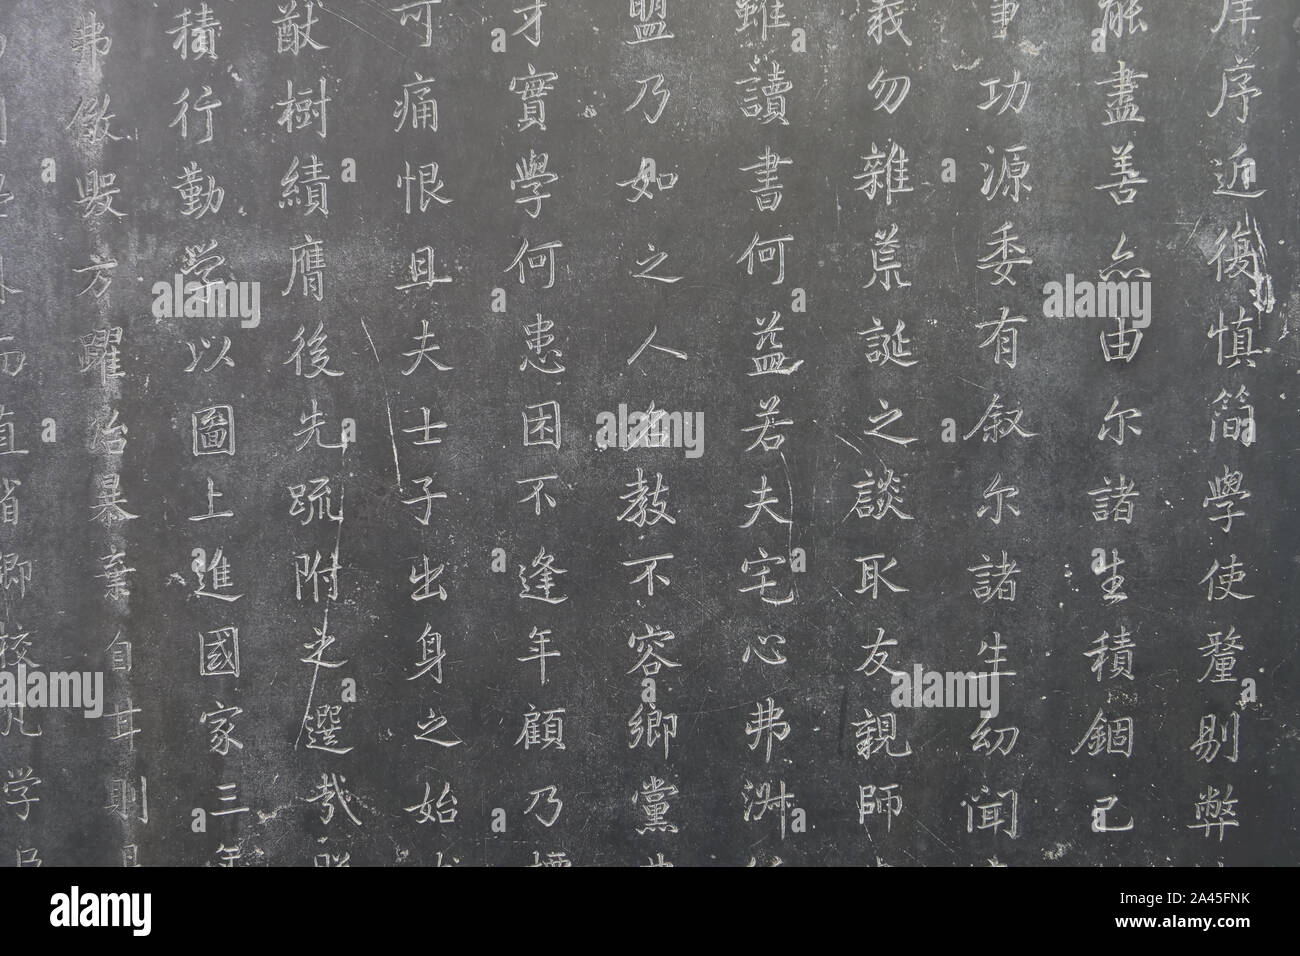 庠序近復慎簡學使釐剔弊
能盡善亦由尔諸生積錮已
事功源委有叙尔諸生幼聞
義勿雜荒誕之談取友親師
雖讀書何益若夫宅心弗淑
盟乃如之人名教不容鄉黨
才實學何患困不逢年顧乃
可痛恨且夫士子出身之始
猷樹績膺後先疏附之選哉
積行勤学以圖上進國家三
弗儆方躍冶暴棄自甘則
而直省鄉校凡学
alamy
Image ID: 2A45FNK
www.alamy.com